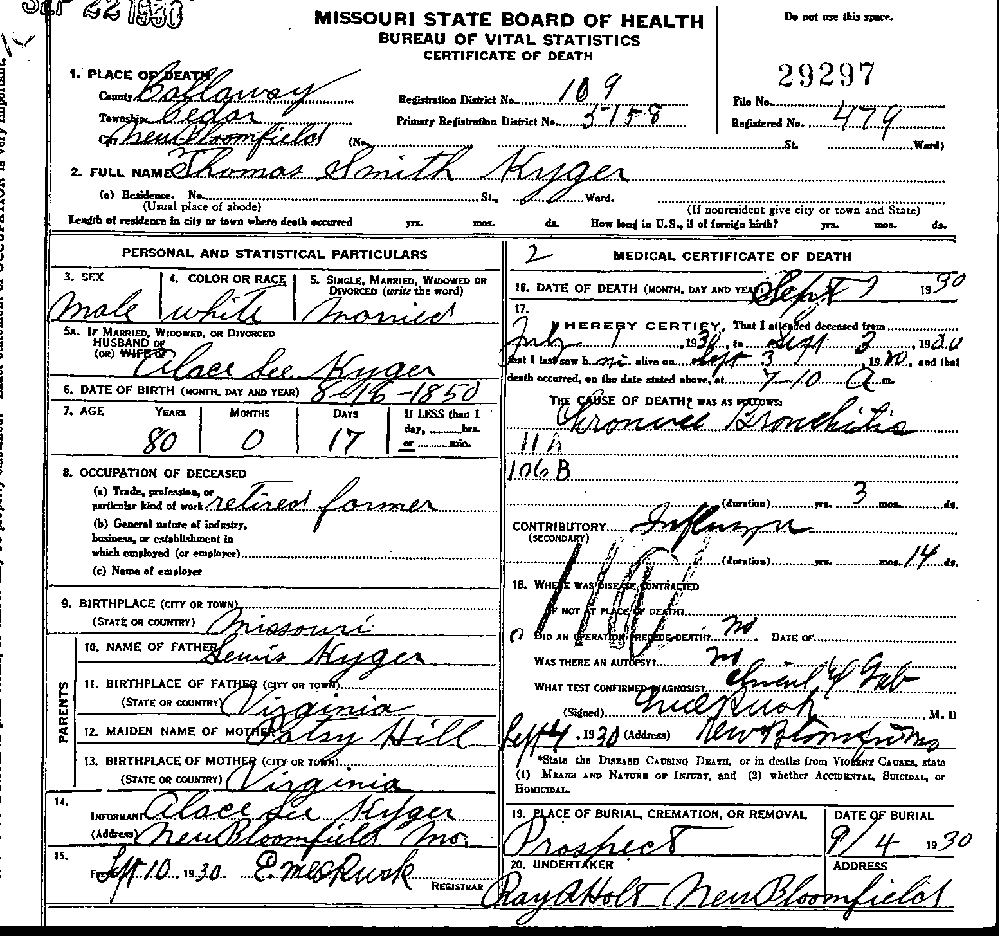 SEP 22 1930
MISSOURI STATE BOARD OF HEALTH
BUREAU OF VITAL STATISTICS
CERTIFICATE OF DEATH
Do not use this space.
29297
1. PLACE OF DEATH
County Callaway
Township Cedar
City New Bloomfield (No. St. Ward)
Registration District No. 109
Primary Registration District No. 5158
File No.
Registered No. 479
2. FULL NAME Thomas Smith Kyger
(a) Residence. No. St., Ward.
(Usual place of abode) (If nonresident give city or town and State)
Length of residence in city or town where death occurred yrs. mos. ds. How long in U.S., if of foreign birth? yrs. mos. ds.
PERSONAL AND STATISTICAL PARTICULARS
3. SEX
male
4. COLOR OR RACE
white
5. SINGLE, MARRIED, WIDOWED OR DIVORCED (write the word)
Married
5A. IF MARRIED, WIDOWED, OR DIVORCED
HUSBAND OF
(OR) WIFE OF Alace Lee Kyger
6. DATE OF BIRTH (MONTH, DAY AND YEAR) 8-16-1850
7. AGE YEARS MONTHS DAYS If LESS than 1
day, hrs.
or min.
80 0 17
8. OCCUPATION OF DECEASED
(a) Trade, profession, or
particular kind of work retired farmer
(b) General nature of industry,
business, or establishment in
which employed (or employer)
(c) Name of employer
9. BIRTHPLACE (CITY OR TOWN)
(STATE OR COUNTRY) Missouri
PARENTS
10. NAME OF FATHER Lewis Kyger
11. BIRTHPLACE OF FATHER (CITY OR TOWN)
(STATE OR COUNTRY) Virginia
12. MAIDEN NAME OF MOTHER Patsy Hill
13. BIRTHPLACE OF MOTHER (CITY OR TOWN)
(STATE OR COUNTRY) Virginia
14.
INFORMANT Alace Lee Kyger
(Address) New Bloomfield Mo.
15.
Filed Sept 10 1930 REGISTRAR
2 MEDICAL CERTIFICATE OF DEATH
16. DATE OF DEATH (MONTH, DAY AND YEAR) Sept 1930
17.
I HEREBY CERTIFY, That I attended deceased from
July 1 1930, to Sept 3 1930
that I last saw him alive on Sept 3 1930, and that
death occurred, on the date stated above, at 7-10 a m.
THE CAUSE OF DEATH* WAS AS FOLLOWS:
Bronchitis
11A
106B
(duration) yrs. 3 mos. ds.
CONTRIBUTORY Influenza
(SECONDARY)
(duration) yrs. mos. 14 ds.
18. WHERE WAS DISEASE CONTRACTED
IF NOT AT PLACE OF DEATH?
DID AN OPERATION PRECEDE DEATH? no DATE OF
WAS THERE AN AUTOPSY? no
WHAT TEST CONFIRMED DIAGNOSIS?
(Signed) , M. D
Sept 4, 1930 (Address) New Bloomfield Mo
*State the DISEASE CAUSING DEATH, or in deaths from VIOLENT CAUSES, state
(1) MEANS AND NATURE OF INJURY, and (2) whether ACCIDENTAL, SUICIDAL, or
HOMICIDAL.
19. PLACE OF BURIAL, CREMATION, OR REMOVAL
Prospect
DATE OF BURIAL
9/4 1930
20. UNDERTAKER
Ray A Holt
ADDRESS
New Bloomfield